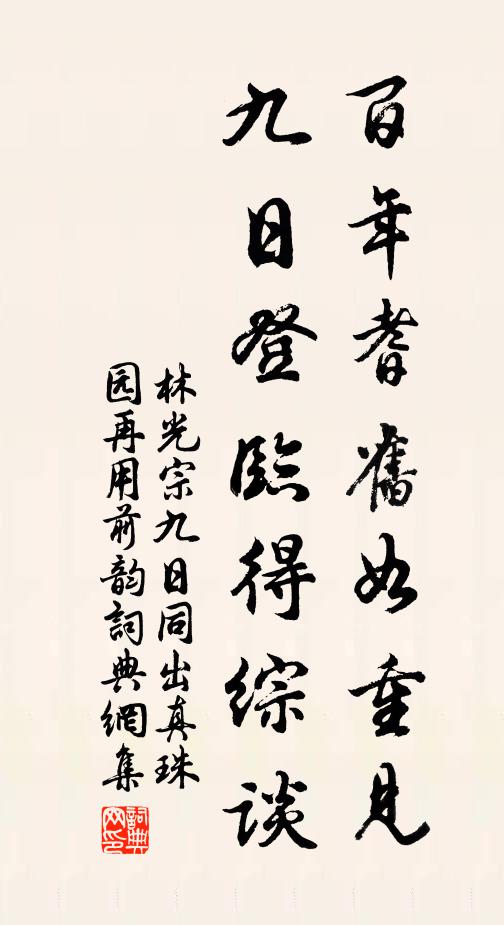 百年耆舊如重見
九日登臨得綜談
林光宗九日同出真珠
园再用前韵詞典網集
詞典网印